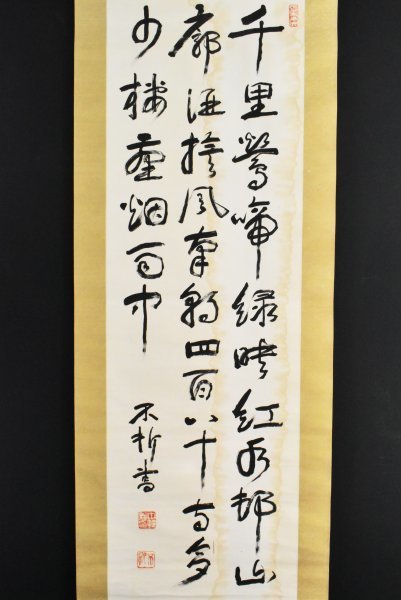 千里鶯啼緑映紅水邨山
廓酒旗風南朝四百八十寺多
少樓臺烟雨中
不折書